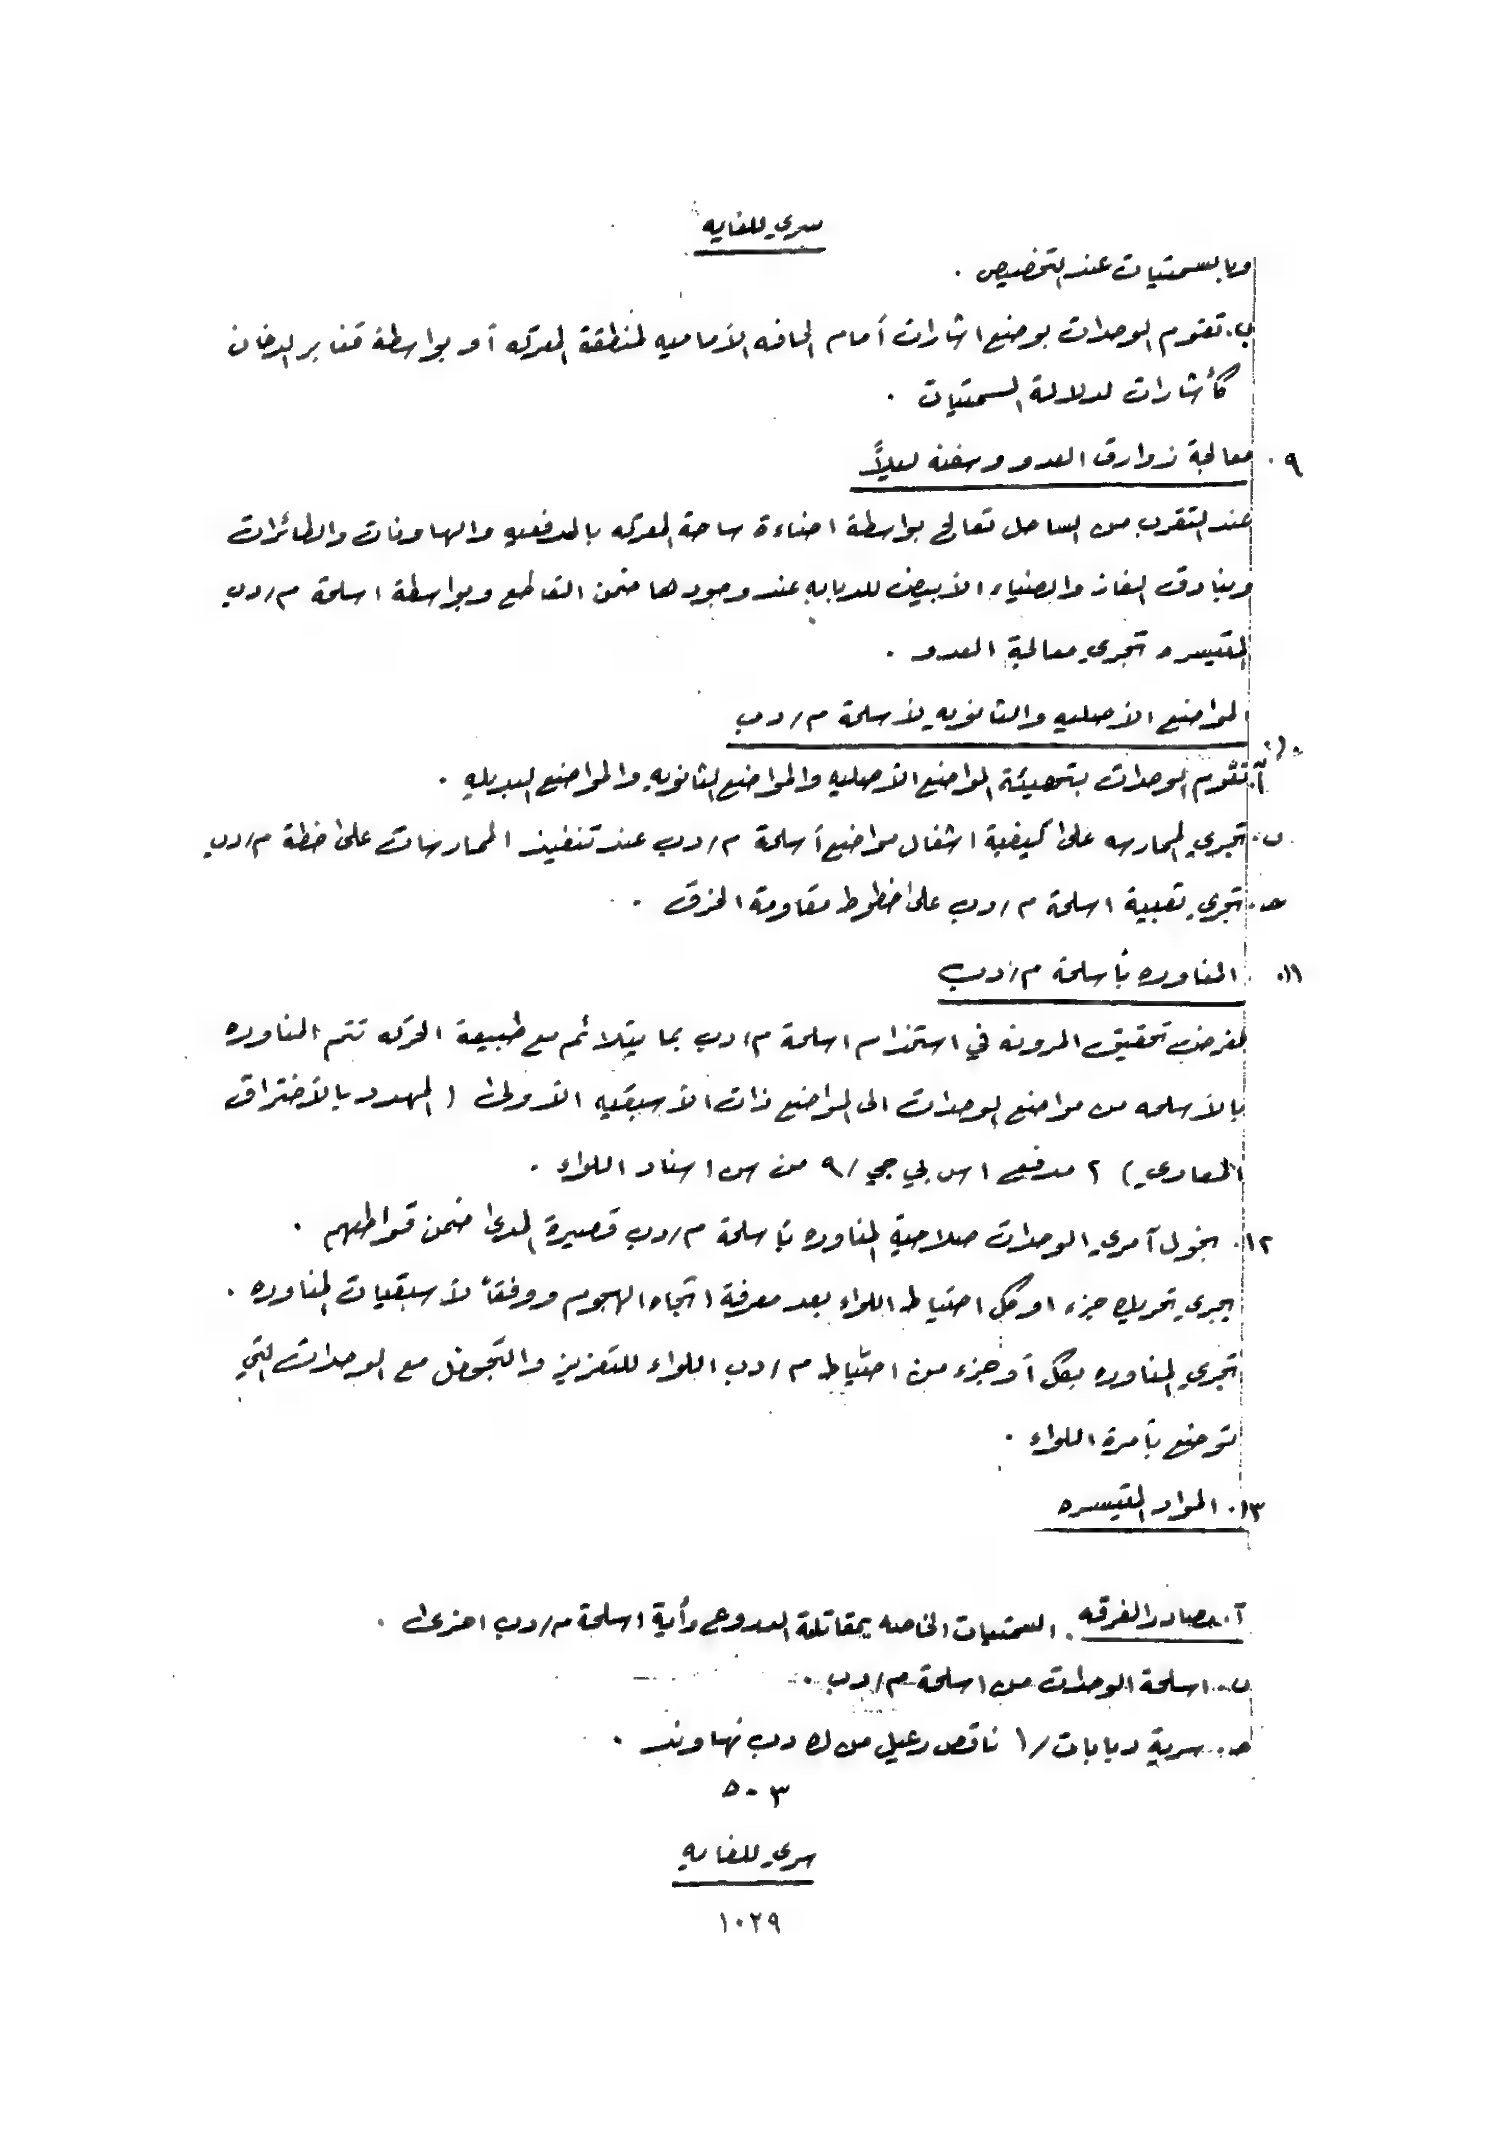 سري للغايه
وبالسمتيات عند التخصيص .
ي. تقوم الوحدات بوضع اشارات أمام الحافه الأماميه لمنطقة المعركه أو بواسطة قنابر الدخان
كأشارات لدلالة السمتيات .
٩. معالجة زوارق العدو وسفنه ليلاً
عند التقرب من الساحل تعالج بواسطة اضاءة ساحة المعركه بالمدفعيه والهاونات والطائرات
وبنادق الغاز والضياء الأبيض للدبابه عند وجودها ضمن القاطع وبواسطة اسلحة م/دب
المتيسره تجري معالجة العدو .
١٠. المواضع الأصليه والثانويه لأسلحة م/دب
أ. تقوم الوحدات بتهيئة المواضع الأصليه والمواضع الثانويه والمواضع البديله .
ب. تجري الممارسه على كيفية اشغال مواضع أسلحة م/دب عند تنفيذ الممارسات على خطة م/دب
حـ. تجري تعبية اسلحة م/دب على خطوط مقاومة الخرق .
١١. المناوره بأسلحة م/دب
لغرض تحقيق المرونه في استخدام اسلحة م/دب بما يتلائم مع طبيعة الحركه تتم المناوره
بالأسلحه من مواضع الوحدات الى المواضع ذات الأسبقيه الأولى ( المهدد بالأختراق
المعادي ) ٢ مدفع اس بي جي /٩ من س اسناد اللواء .
١٢. يخول آمري الوحدات صلاحية المناوره بأسلحة م/دب قصيرة المدى ضمن قواطعهم .
يجري تحريك جزء او كل احتياط اللواء بعد معرفة اتجاه الهجوم ووفقاً لأسبقيات المناوره .
تجري المناوره بكل أو جزء من احتياط م/دب اللواء للتعزيز والتعويض مع الوحدات التي
توضع بأمرة اللواء .
١٣. المواد المتيسره
آ. مصادر الفرقه . السمتيات الخاصه بمقاتلة الدروع وأية اسلحة م/دب اخرى .
ب. اسلحة الوحدات من اسلحة م/دب .
حـ. سرية دبابات /١ ناقص رعيل من ك دب نهاوند .
٣ - ٥
سري للغايه
١٠٢٩